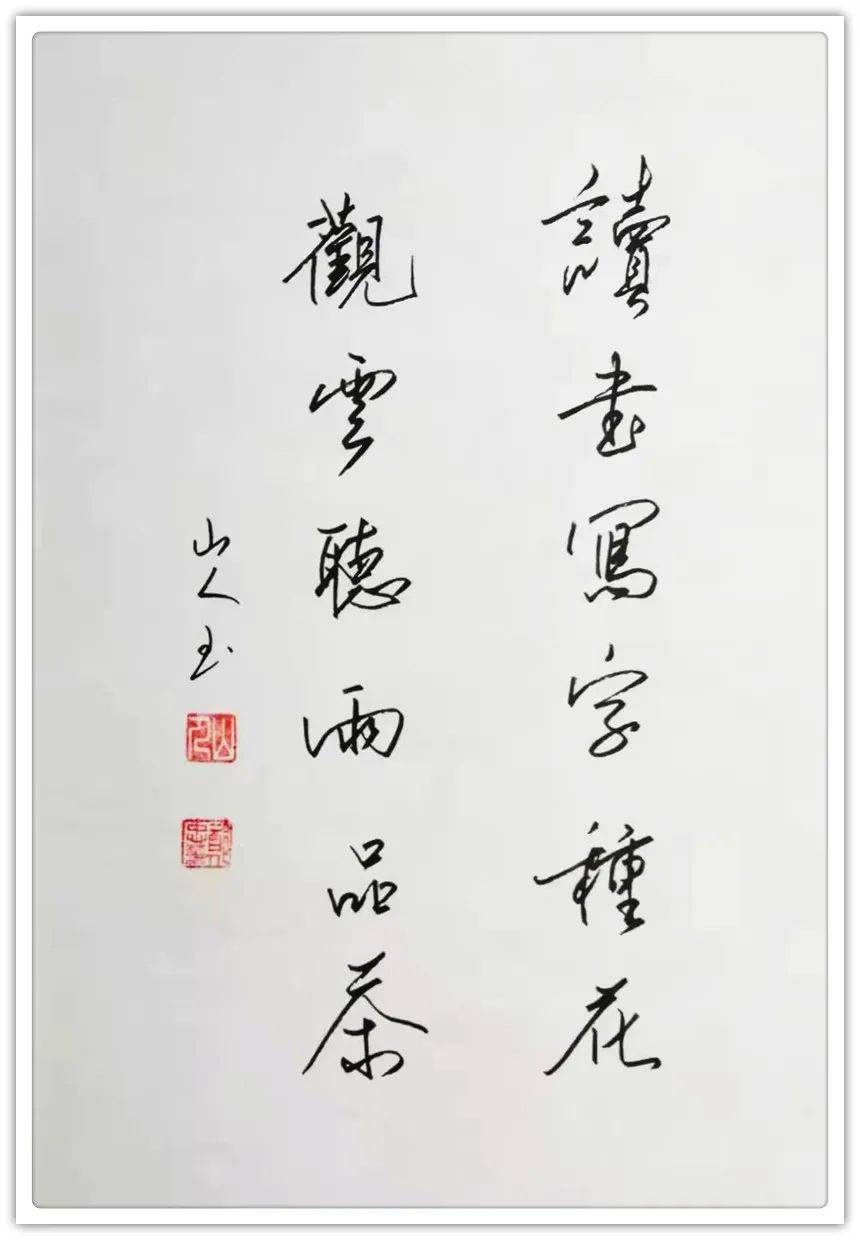 讀書寫字種花
觀雲聽雨品茶
山人書
山人